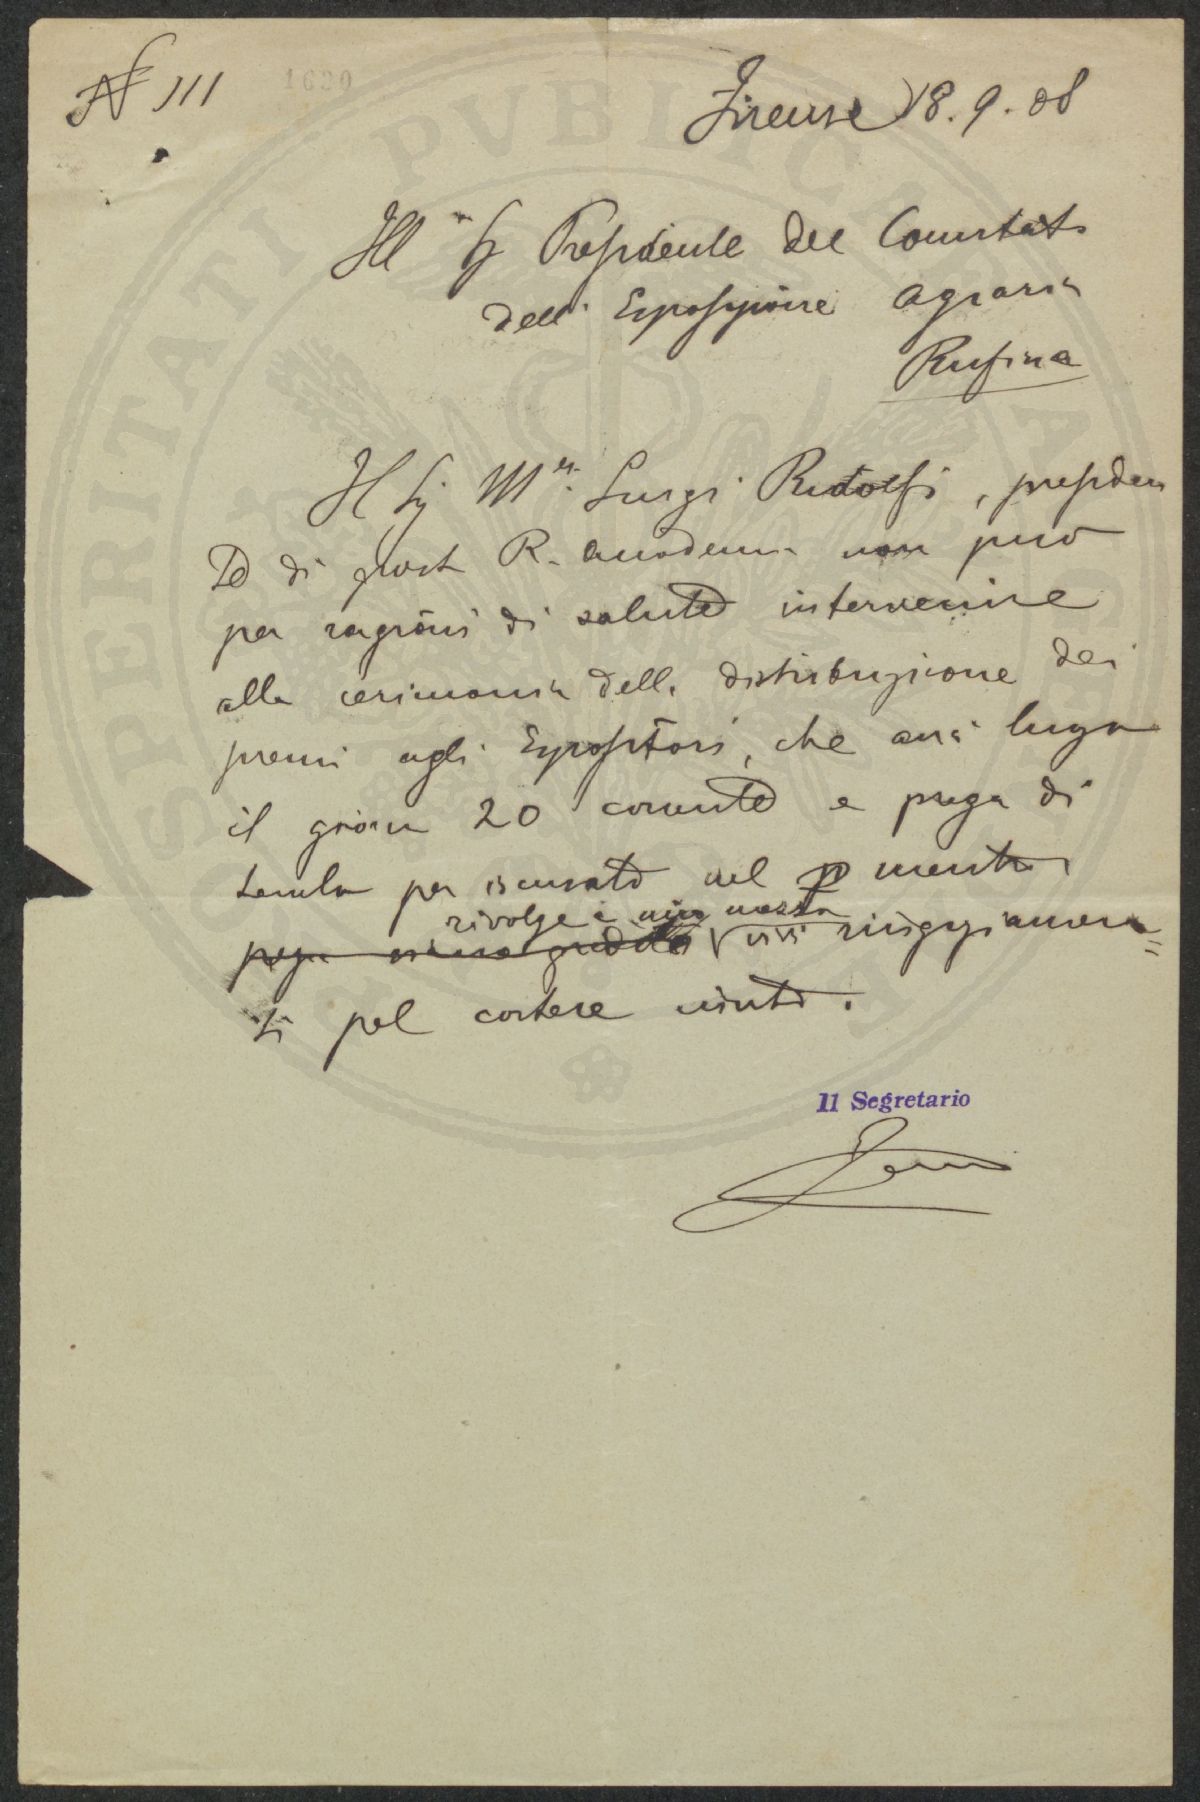 N 111
1620
Firenze 18.9.08
Ill.mo Sg Presidente del Comitato
dell'Esposizione Agraria
Rufina
Il Sg March. Luigi Ridolfi, presiden
te di questa R. Accademia non può
per ragioni di salute intervenire
alla cerimonia della distribuzione dei
premi agli Espositori, che avrà luogo
il giorno 20 corrente e prega di
tenerlo per iscusato nel mentre
rivolge a mio mezzo
prega vivi ringraziamen=
ti pel cortese invito.
Il Segretario
PVBLICAE
PROSPERITATI